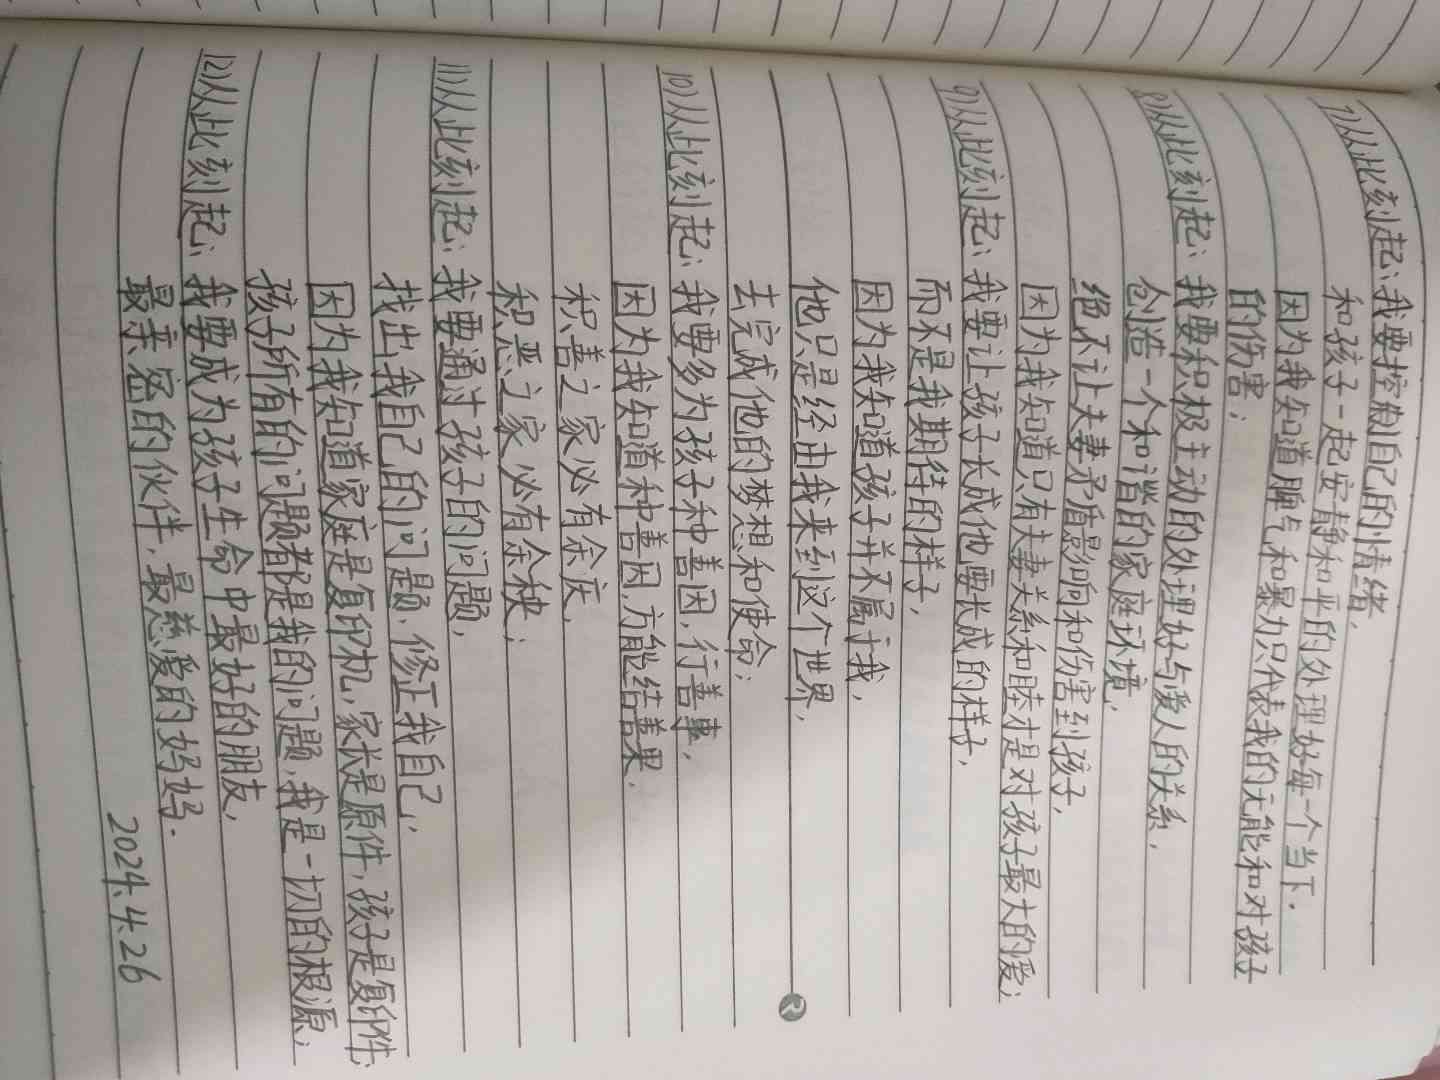 7)从此刻起：我要控制自己的情绪，
和孩子一起安静和平的处理好每一个当下，
因为我知道脾气和暴力只代表我的无能和对孩子
的伤害；
8)从此刻起：我要积极主动的处理好与爱人的关系，
创造一个和谐的家庭环境，
绝不让夫妻矛盾影响和伤害到孩子，
因为我知道只有夫妻关系和睦才是对孩子最大的爱；
9)从此刻起：我要让孩子长成他要长成的样子，
而不是我期待的样子，
因为我知道孩子并不属于我，
他只是经由我来到这个世界，
去完成他的梦想和使命；
10)从此刻起：我要多为孩子种善因，行善事，
因为我知道种善因，方能结善果，
积善之家必有余庆，
积恶之家必有余殃；
11)从此刻起：我要通过孩子的问题，
找出我自己的问题，修正我自己，
因为我知道家庭是复印机，家长是原件，孩子是复印件；
孩子所有的问题都是我的问题，我是一切的根源；
12)从此刻起：我要成为孩子生命中最好的朋友，
最亲密的伙伴，最慈爱的妈妈．
2024.4.26